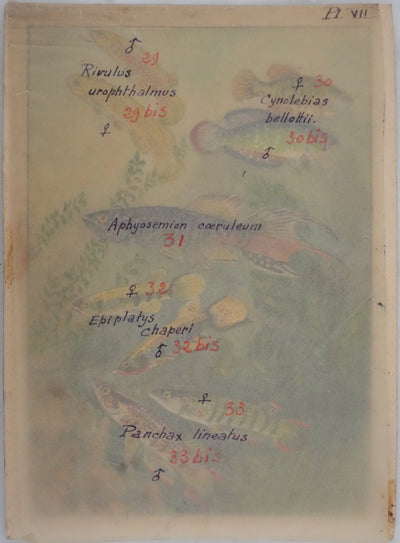 Pl. VII
♂ 29
Rivulus
urophthalmus
29 bis
♀
♀ 30
Cynolebias
bellottii.
30 bis
♂
Aphyosemion cæruleum
31
♀ 32
Epiplatys
chaperi
♂ 32 bis
♀ 33
Panchax lineatus
33 bis
♂